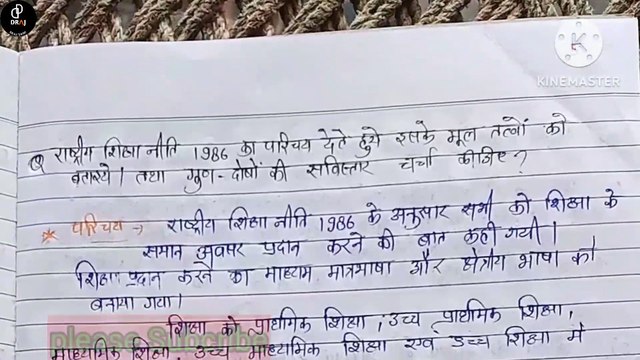 DRAJ
KINEMASTER
Q राष्ट्रीय शिक्षा नीति 1986 का परिचय देते हुये इसके मूल तत्वों को
बताइये। तथा गुण-दोषों की सविस्तार चर्चा कीजिए?
* परिचय → राष्ट्रीय शिक्षा नीति 1986 के अनुसार सभी को शिक्षा के
समान अवसर प्रदान करने की बात कही गयी।
शिक्षा प्रदान करने का माध्यम मात्रभाषा और क्षेत्रीय भाषा को
बनाया गया।
शिक्षा को प्राथमिक शिक्षा, उच्च प्राथमिक शिक्षा,
माध्यमिक शिक्षा, उच्च माध्यमिक शिक्षा एवं उच्च शिक्षा में
please Subscribe